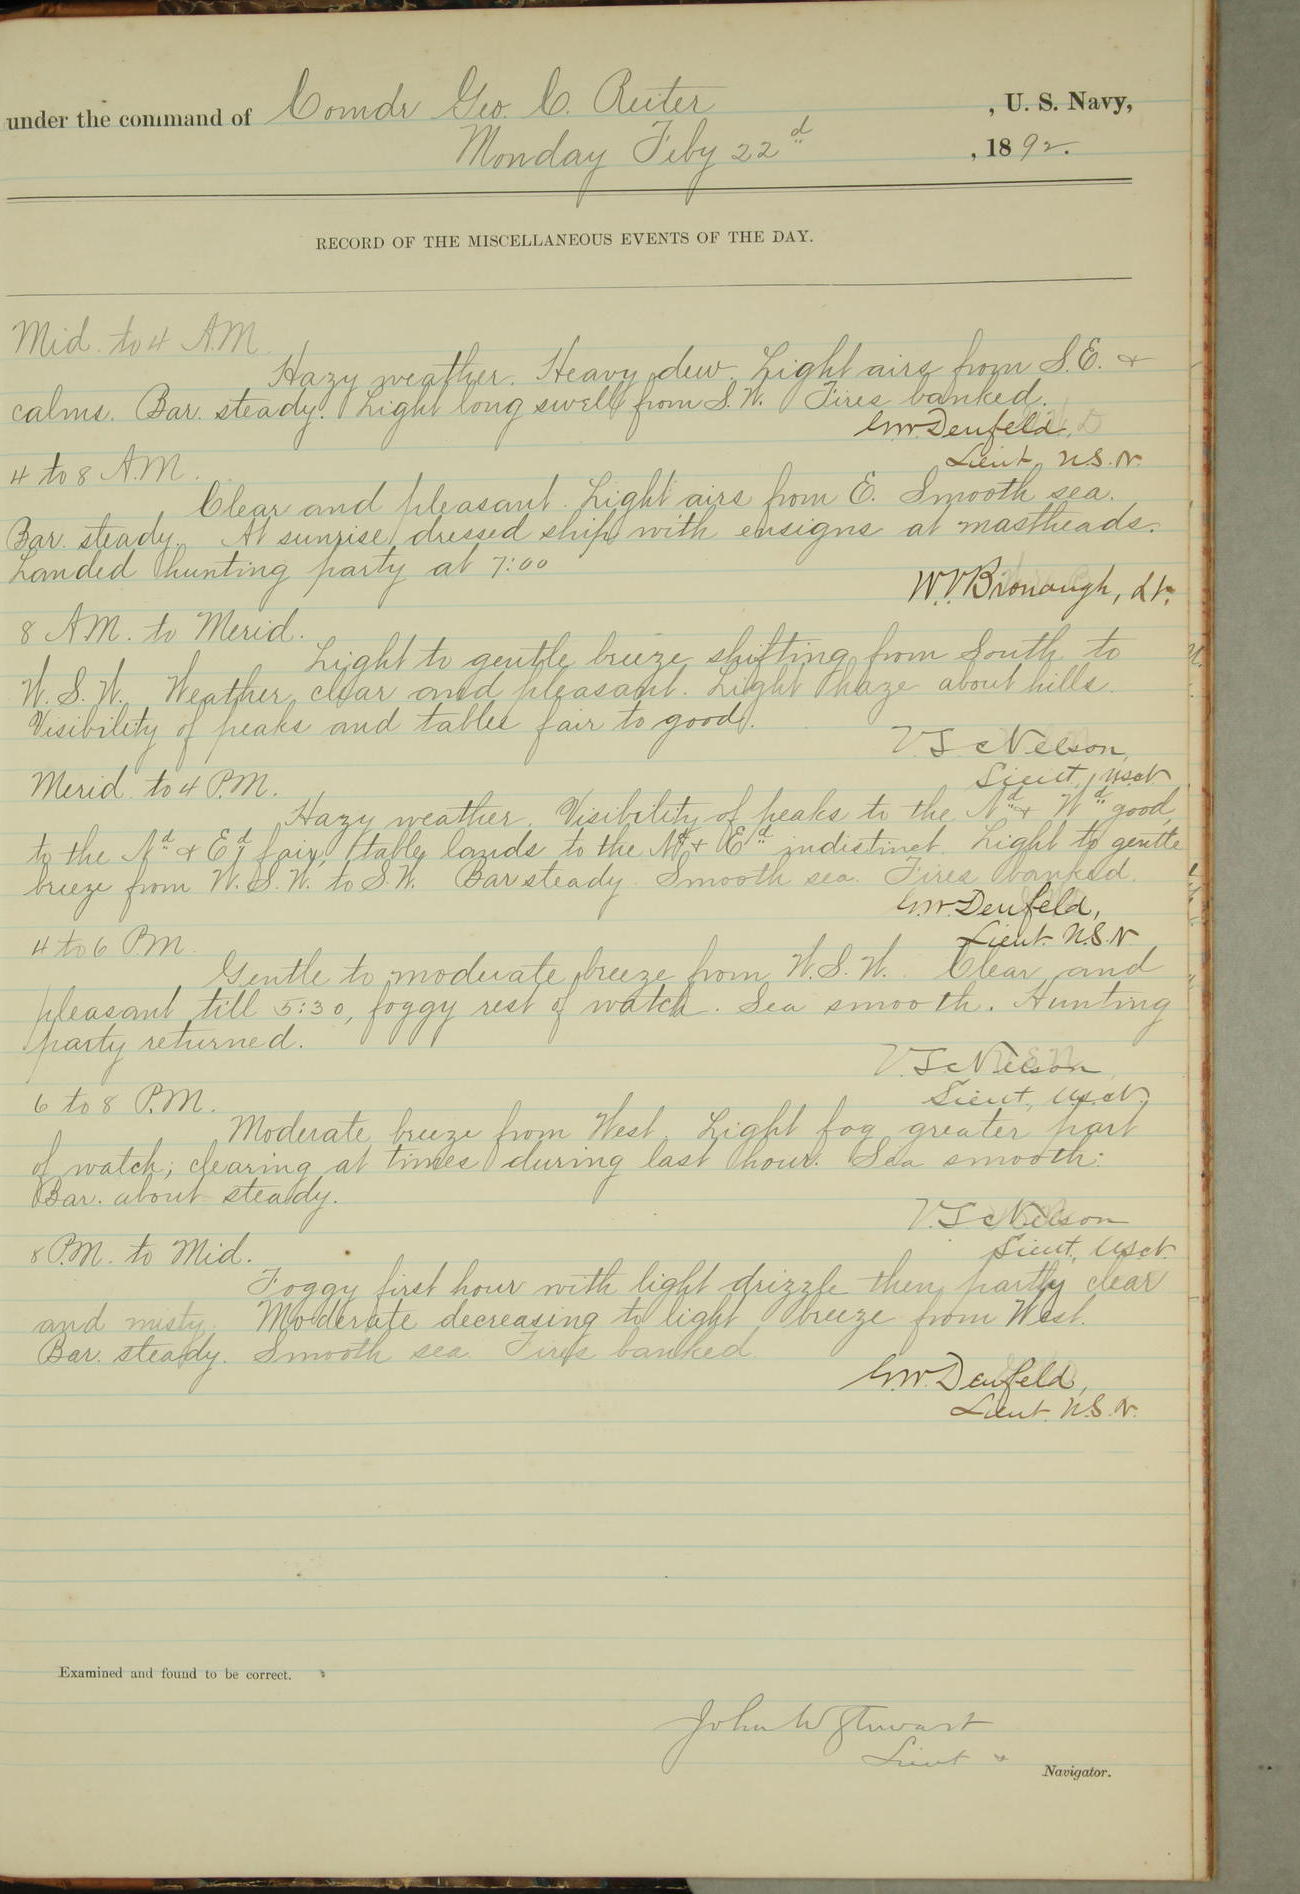 under the command of Comdr Geo. C. Reiter, U. S. Navy,
Monday Feby 22d, 1892.
RECORD OF THE MISCELLANEOUS EVENTS OF THE DAY.
Mid. to 4 A.M.
Hazy weather. Heavy dew. Light airs from S.E. &
calms. Bar. steady. Light long swell from S.W. Fires banked.
G.W. Denfeld,
Lieut. U.S.N.
4 to 8 A.M.
Clear and pleasant. Light airs from E. Smooth sea.
Bar. steady. At sunrise dressed ship with ensigns at mastheads.
Landed hunting party at 7:00
W.V. Bronaugh, Lt.
8 A.M. to Merid.
Light to gentle breeze shifting from South to
W.S.W. Weather clear and pleasant. Light haze about hills.
Visibility of peaks and tables fair to good.
V. S. Nelson,
Lieut, USN
Merid. to 4 P.M.
Hazy weather. Visibility of peaks to the Nd & Wd good,
to the Nd & Ed fair, table lands to the Nd & Ed indistinct. Light to gentle
breeze from W.S.W. to S.W. Bar steady. Smooth sea. Fires banked.
G.W. Denfeld,
Lieut. U.S.N
4 to 6 P.M.
Gentle to moderate breeze from W.S.W. Clear and
pleasant till 5:30, foggy rest of watch. Sea smooth. Hunting
party returned.
V. S. Nelson,
Lieut, U.S.N.
6 to 8 P.M.
Moderate breeze from West. Light fog greater part
of watch; clearing at times during last hour. Sea smooth.
Bar. about steady.
V. S. Nelson
Lieut, USN.
8 P.M. to Mid.
Foggy first hour with light drizzle then partly clear
and misty. Moderate decreasing to light breeze from West.
Bar. steady. Smooth sea. Fires banked.
G.W. Denfeld,
Lieut. U.S.N.
Examined and found to be correct.
John W Stewart
Lieut &
Navigator.